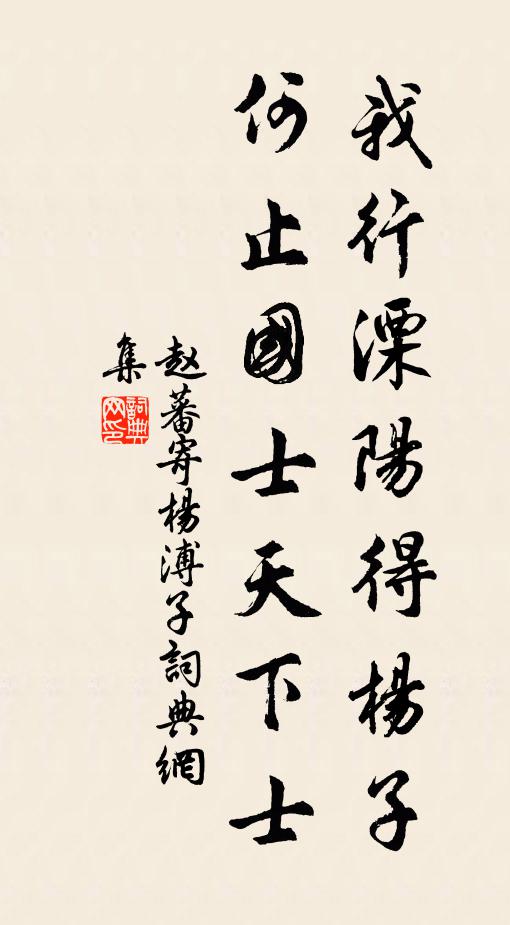 我行溧陽得楊子
何止國士天下士
赵蕃寄楊溥子詞典網
集
詞典网印